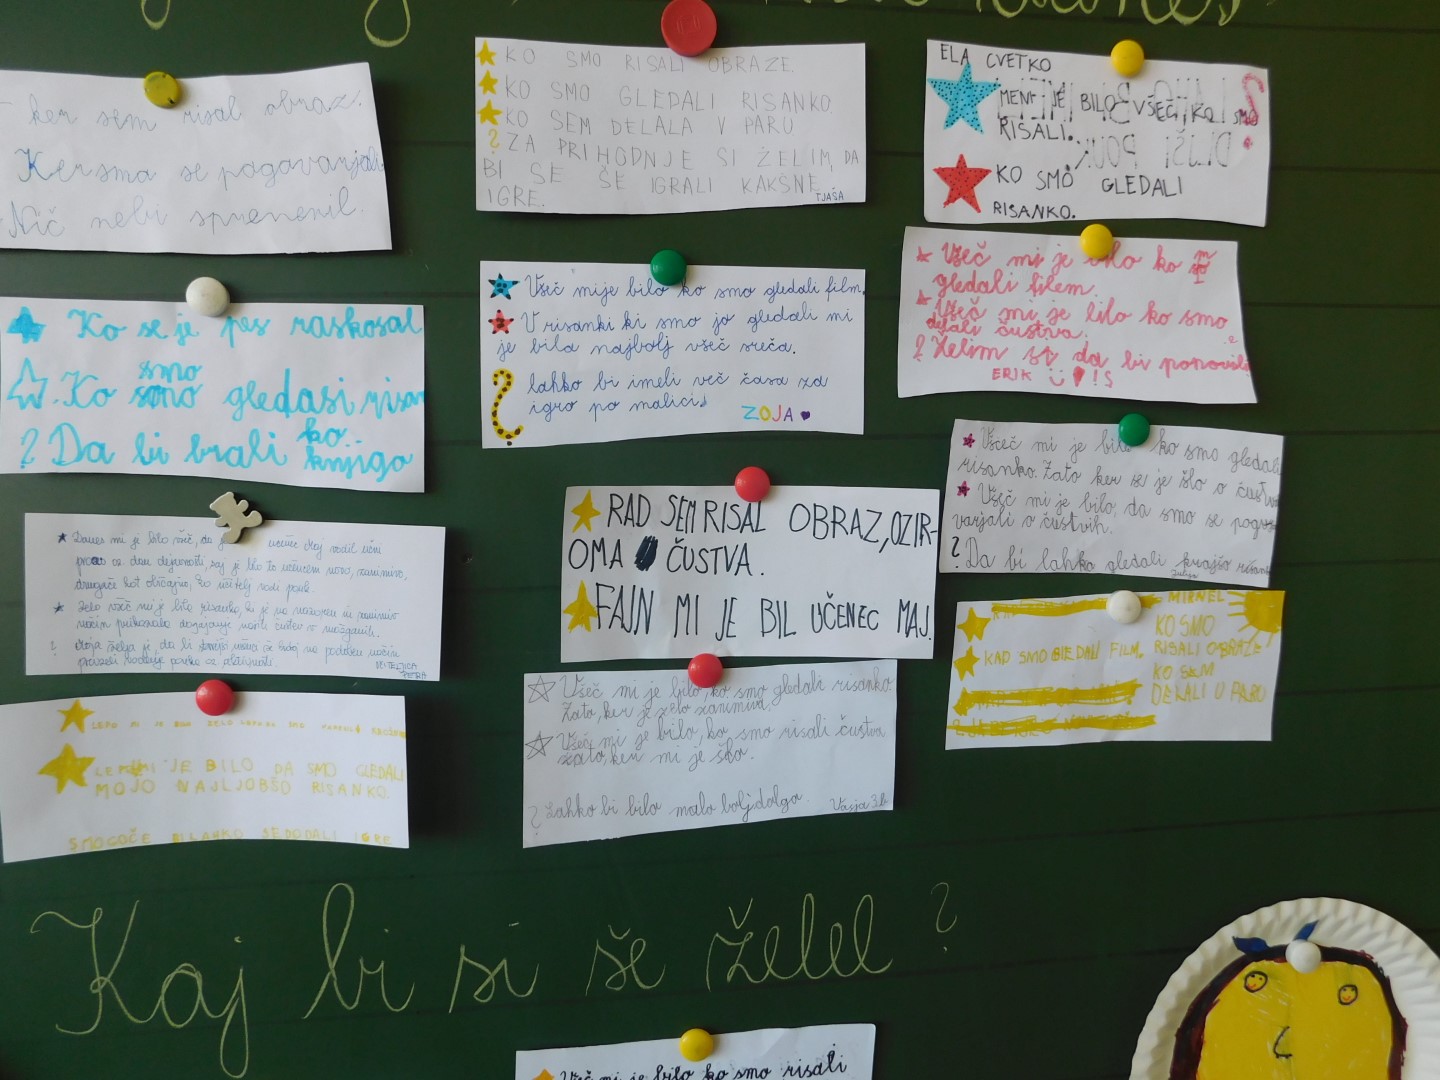 - ker sem risal obraz.
Ker smo se pogovarjali
Nič nebi spremenil.
KO SMO RISALI OBRAZE.
KO SMO GLEDALI RISANKO
KO SEM DELALA V PARU
? ZA PRIHODNJE SI ŽELIM, DA
BI SE ŠE IGRALI KAKŠNE
IGRE. TJAŠA
ELA CVETKO
MENI JE BILO VŠEČ, KO SMO
RISALI.
KO SMO GLEDALI
RISANKO.
Ko se je pes raskosal
smo
Ko smo gledasi risan
? Da bi brali ko..
knjigo
Všeč mije bilo ko smo gledali film.
V risanki ki smo jo gledali mi
je bila najbolj všeč sreča.
? lahko bi imeli več časa za
igro po malici.
ZOJA
Všeč mi je bilo ko
gledali filem.
Všeč mi je bilo ko smo
delali čustva.
? Želim si da bi ponovili
ERIK !S
Danes mi je bilo všeč, da je učenec Maj vodil učni
proces oz. del dejavnosti, saj je bilo to učencem novo, zanimivo,
drugače kot običajno, ko učitelj vodi pouk.
Zelo všeč mi je bila risanka, ki je na nazoren in zanimiv
način prikazala dogajanje naših čustev v možganih.
? Moja želja je, da bi
UČITELJICA
PETRA
RAD SEM RISAL OBRAZ, OZIR-
OMA ČUSTVA.
FAJN MI JE BIL UČENEC MAJ.
Všeč mi je bilo ko smo gledali
risanko. Zato ker se je šlo o čustv
Všeč mi je bilo, da smo se pogo
varjali o čustvih.
? Da bi lahko gledali krajšo risank
Julija
MIRNEL
KO SMO
KAD SMO GLEDALI FILM. RISALI OBRAZE
KO SEM
DELALI U PARU
LEPO MI JE BILO
LEPO MI JE BILO DA SMO GLEDALI
MOJO NAJLJOBŠO RISANKO.
SMOGOČE BI LAHKO SE DODALI IGRE
Všeč mi je bilo ko smo gledali risanko.
Zato, ker je zelo zanimiva.
Všeč mi je bilo, ko smo risali čustva
zato, ker mi je šlo.
? Lahko bi bilo malo bolj dolgo. Vasja 3.b
Kaj bi si še želel ?
Všeč mi je bilo ko smo risali